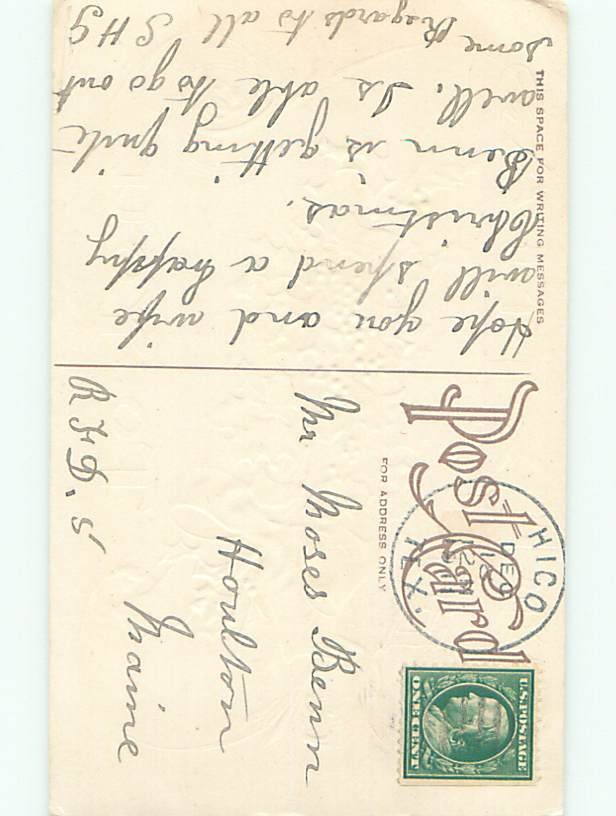 THIS SPACE FOR WRITING MESSAGES
Hope you and wife
will spend a happy
Christmas.
Benn is getting quite
well. Is able to go out
some Regards to all SHG
Post Card
FOR ADDRESS ONLY
HICO
DEC
TEX.
U.S. POSTAGE
ONE CENT
Mr Moses Benn
Houlton
Maine
R.F.D. 5